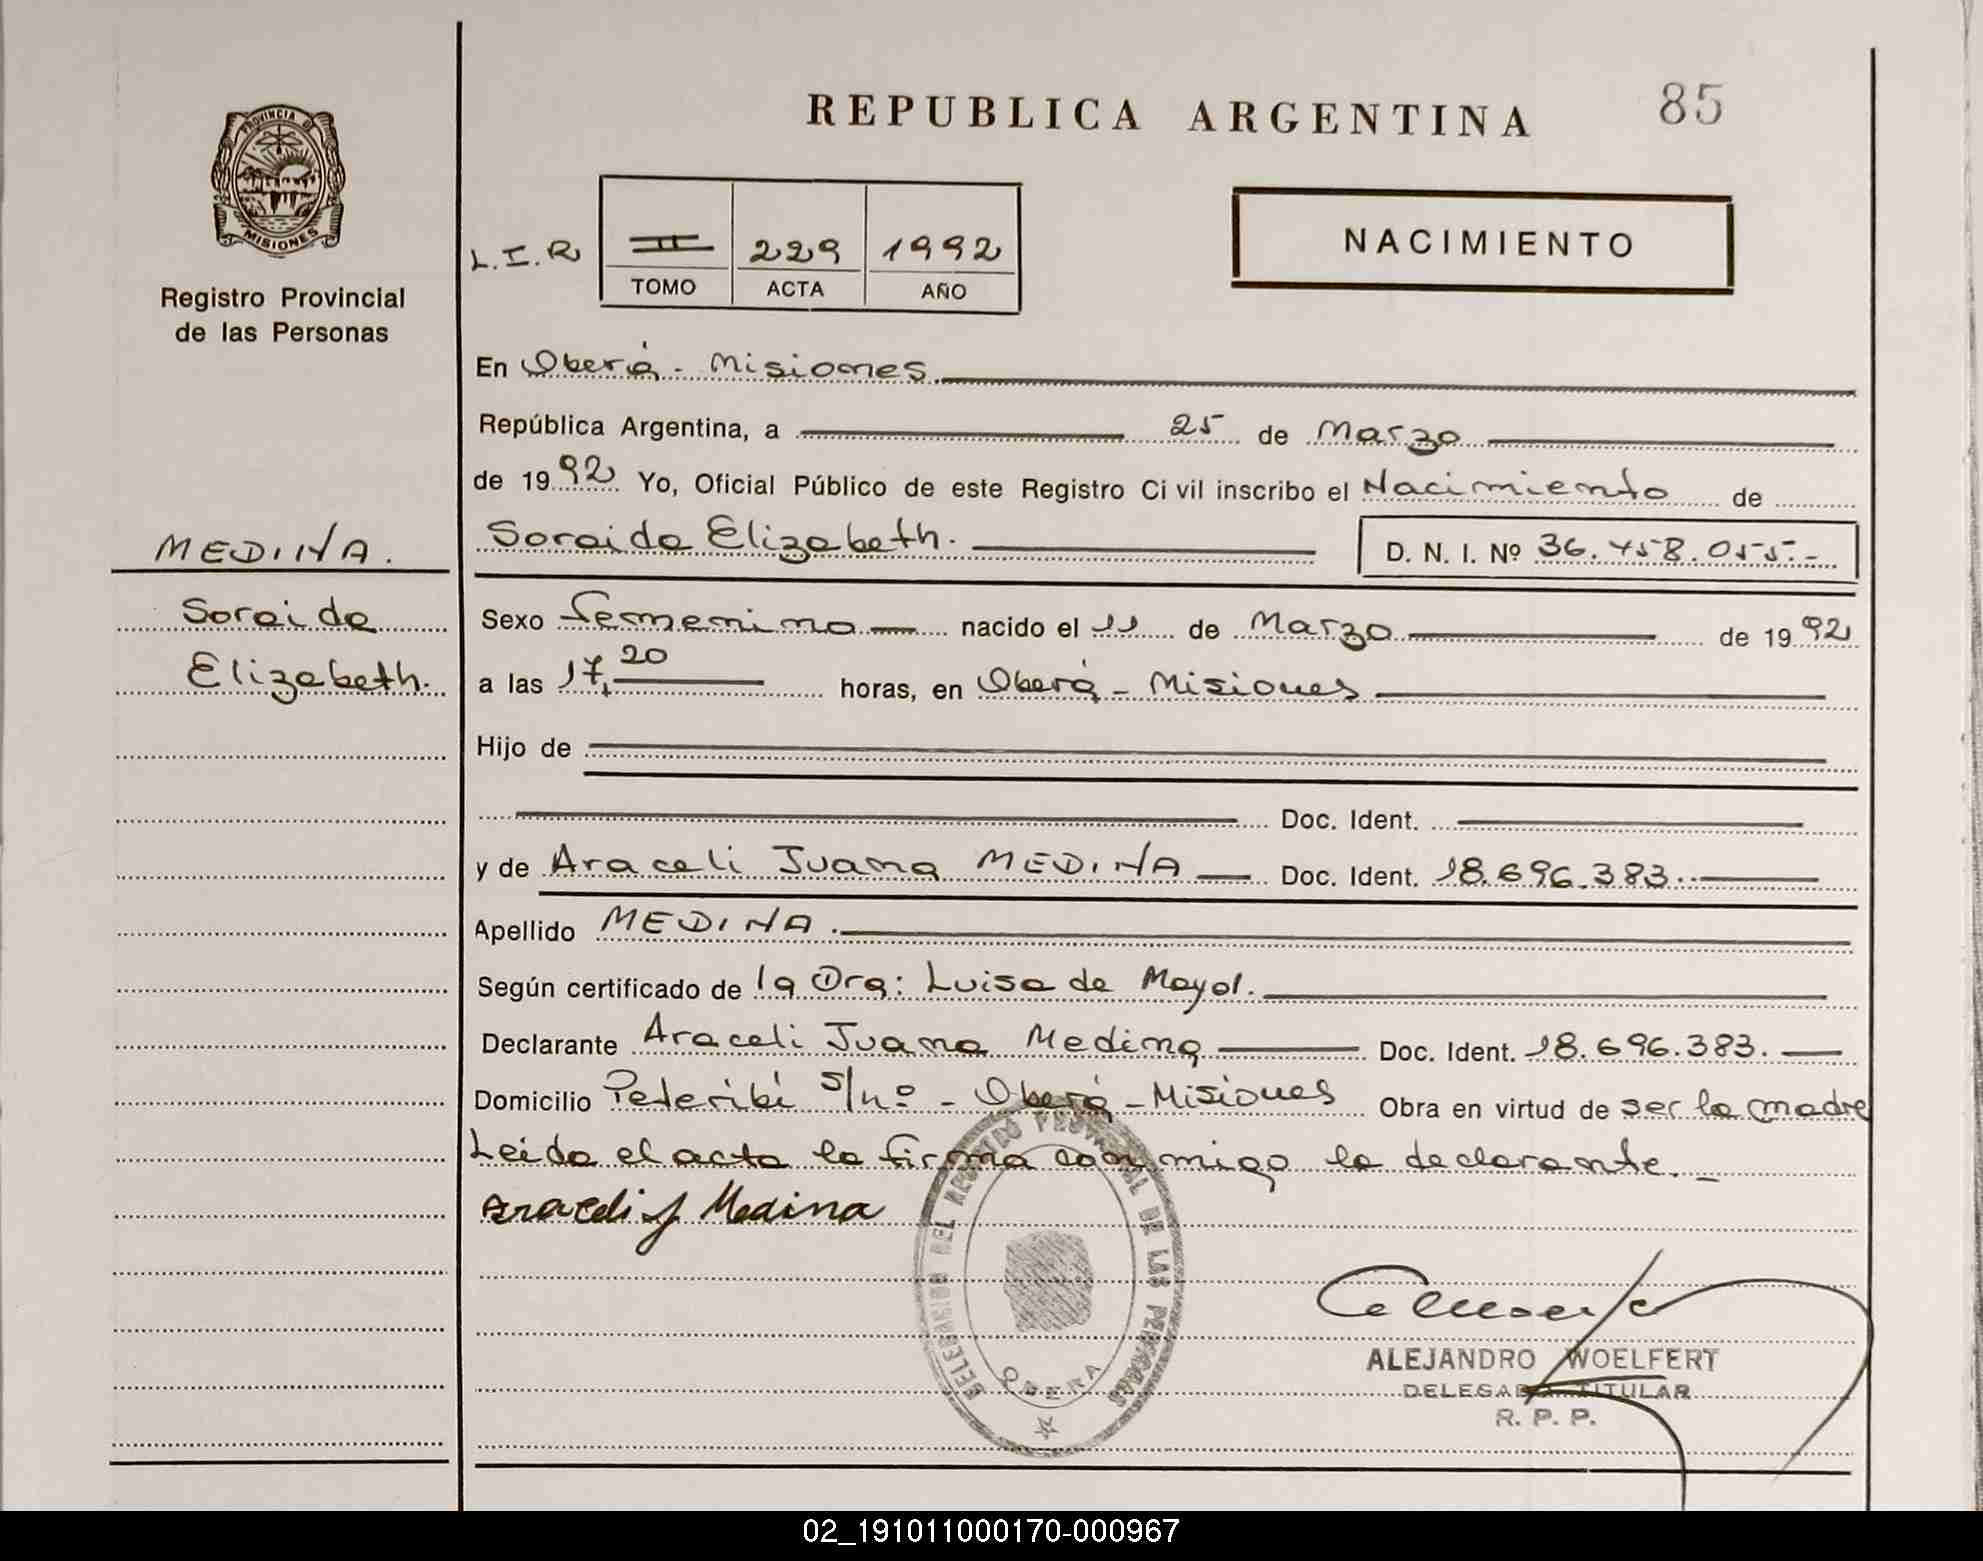 REPUBLICA ARGENTINA
85
PROVINCIA DE
MISIONES
Registro Provincial
de las Personas
L.I.R
II 229 1992
TOMO ACTA AÑO
NACIMIENTO
En Oberá - Misiones
República Argentina, a 25 de Marzo
de 1992 Yo, Oficial Público de este Registro Ci vil inscribo el Nacimiento de
MEDINA.
Soraida Elizabeth. D. N. I. Nº 36.458.055.-
Soraida
Elizabeth.
Sexo femenino nacido el 11 de Marzo de 1992
a las 17,20 horas, en Oberá - Misiones
Hijo de
Doc. Ident.
y de Araceli Juana MEDINA Doc. Ident. 18.696.383.-
Apellido MEDINA.
Según certificado de la Dra: Luisa de Mayol.
Declarante Araceli Juana Medina Doc. Ident. 18.696.383.
Domicilio Peteribí s/nº - Oberá - Misiones Obra en virtud de ser la madre
Leida el acta la firma conmigo la declarante.-
Araceli J Medina
DELEGACION DEL REGISTRO PROVINCIAL DE LAS PERSONAS
OBERA
ALEJANDRO WOELFERT
DELEGADO TITULAR
R. P. P.
02_191011000170-000967